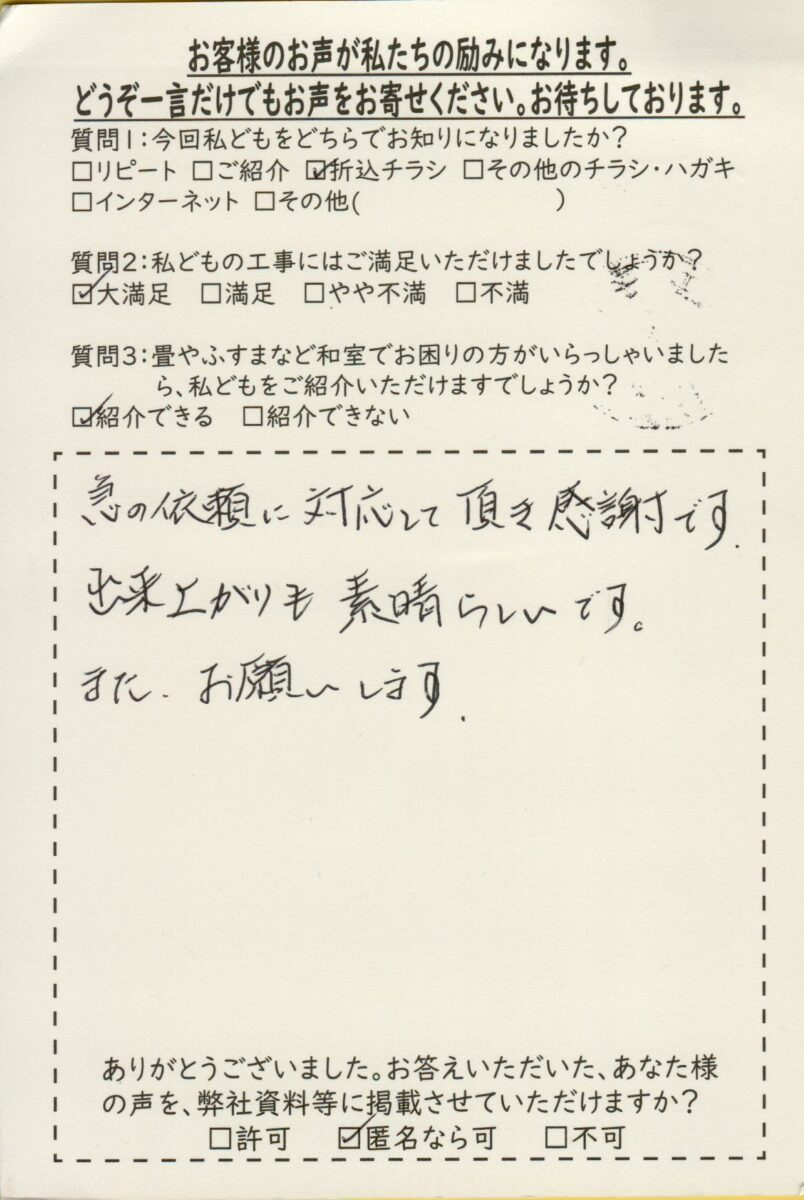 お客様のお声が私たちの励みになります。
どうぞ一言だけでもお声をお寄せください。お待ちしております。
質問1:今回私どもをどちらでお知りになりましたか?
□リピート □ご紹介 ☑折込チラシ □その他のチラシ・ハガキ
□インターネット □その他( )
質問2:私どもの工事にはご満足いただけましたでしょうか?
☑大満足 □満足 □やや不満 □不満
質問3:畳やふすまなど和室でお困りの方がいらっしゃいました
ら、私どもをご紹介いただけますでしょうか?
☑紹介できる □紹介できない
急の依頼に対応して頂き感謝です.
出来上がりも素晴らしいです。
また.お願いします.
ありがとうございました。お答えいただいた、あなた様
の声を、弊社資料等に掲載させていただけますか?
□許可 ☑匿名なら可 □不可